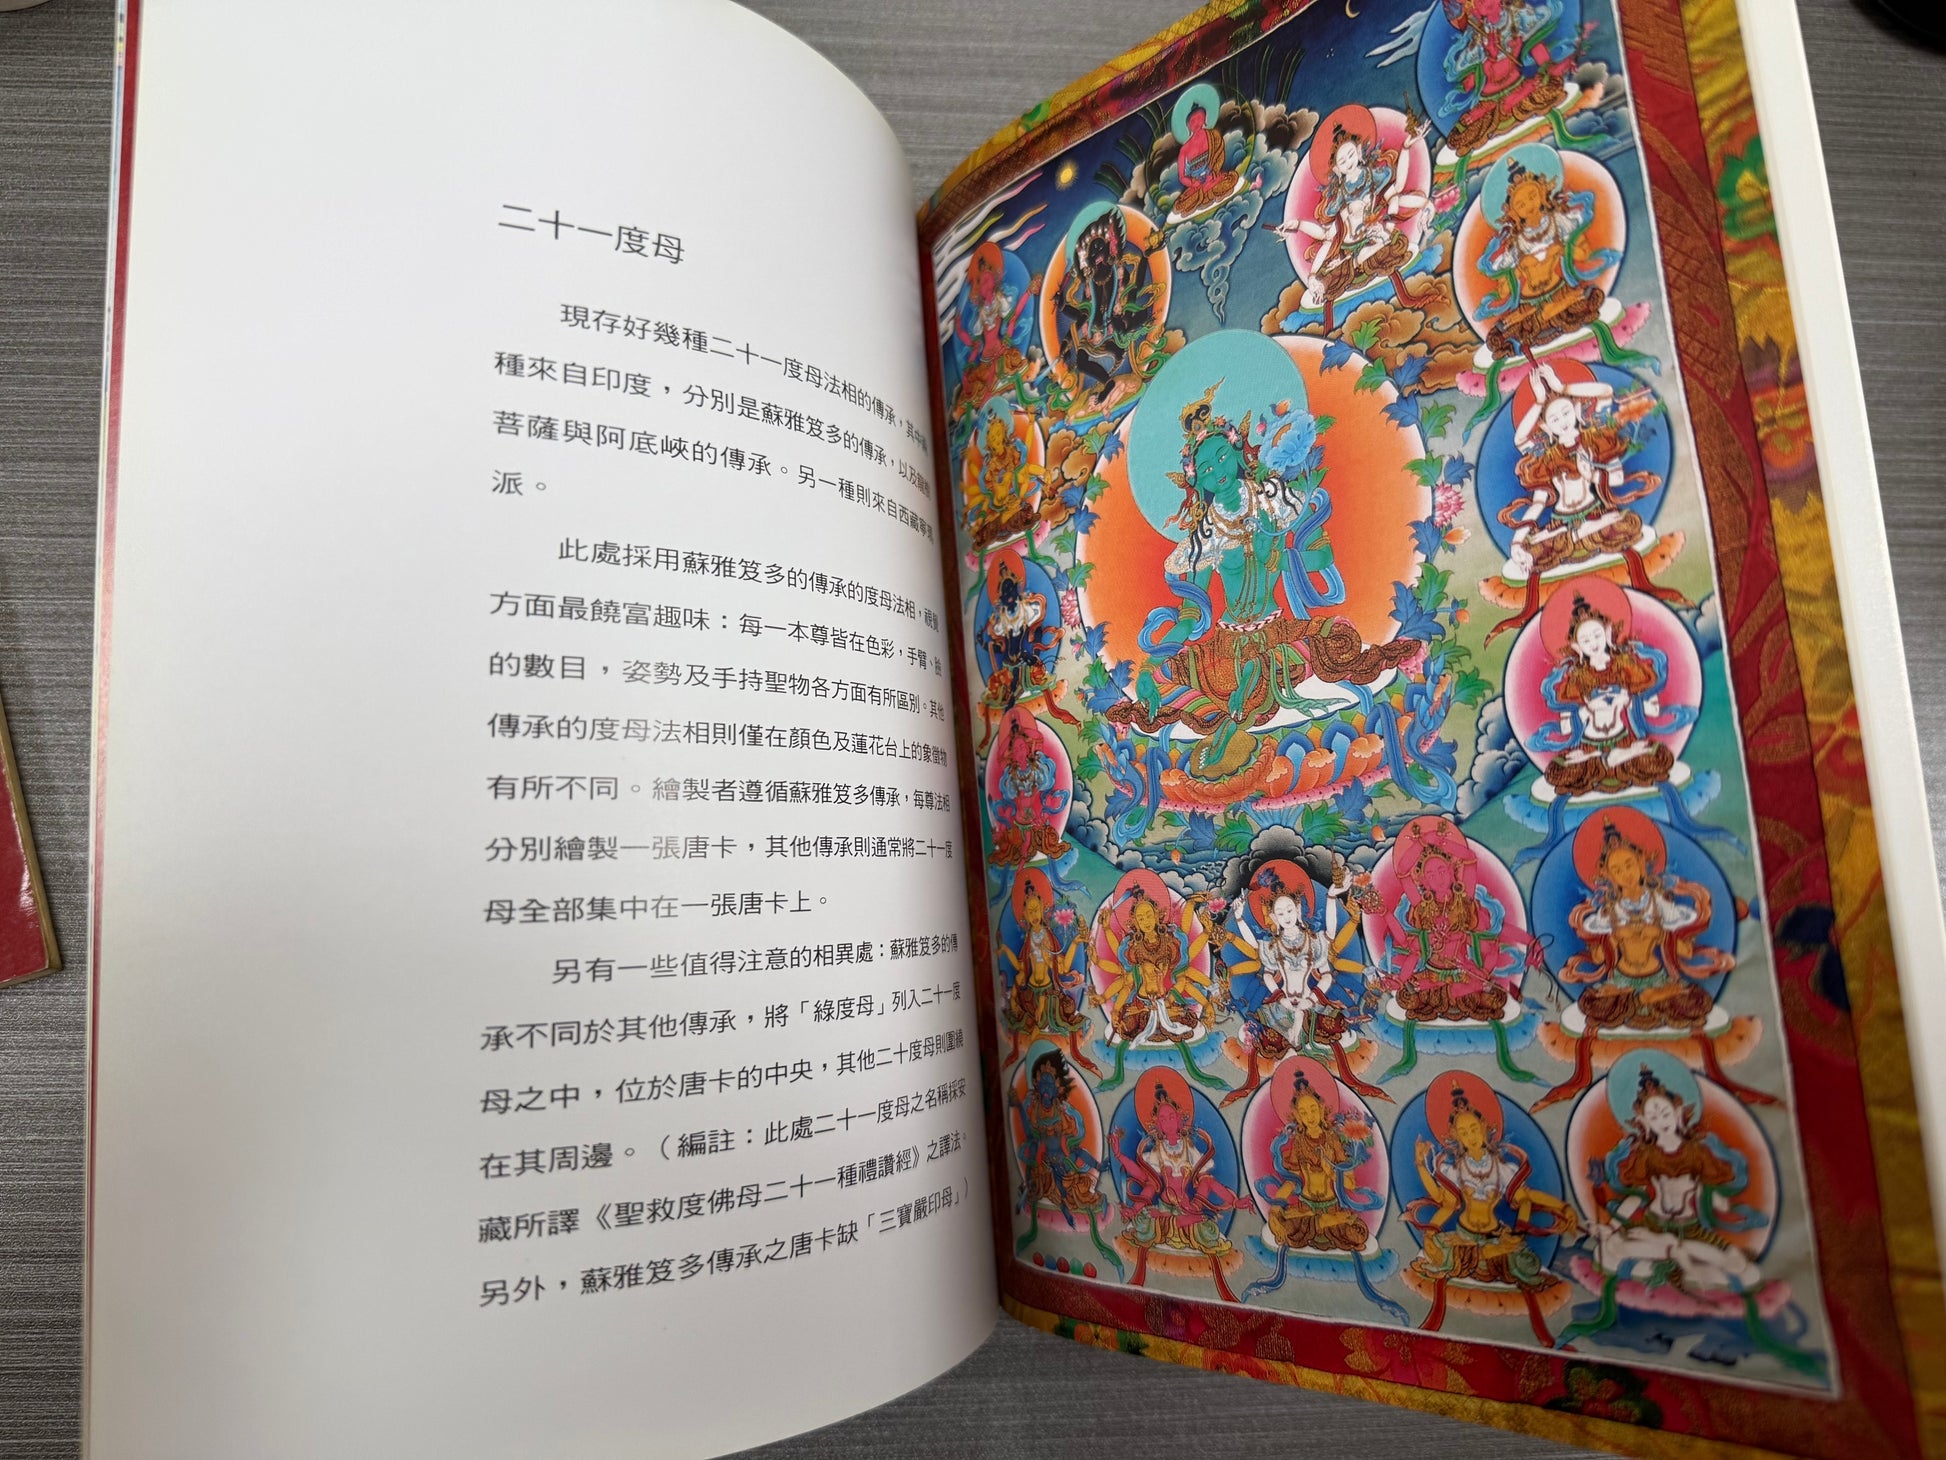 二十一度母
現存好幾種二十一度母法相的傳承，其中兩
種來自印度，分別是蘇雅笈多的傳承，以及龍樹
菩薩與阿底峽的傳承。另一種則來自西藏寧瑪
派。
此處採用蘇雅笈多的傳承的度母法相，視覺
方面最饒富趣味：每一本尊皆在色彩，手臂、臉
的數目，姿勢及手持聖物各方面有所區別。其他
傳承的度母法相則僅在顏色及蓮花台上的象徵物
有所不同。繪製者遵循蘇雅笈多傳承，每尊法相
分別繪製一張唐卡，其他傳承則通常將二十一度
母全部集中在一張唐卡上。
另有一些值得注意的相異處：蘇雅笈多的傳
承不同於其他傳承，將「綠度母」列入二十一度
母之中，位於唐卡的中央，其他二十度母則圍繞
在其周邊。（編註：此處二十一度母之名稱採安
藏所譯《聖救度佛母二十一種禮讚經》之譯法。
另外，蘇雅笈多傳承之唐卡缺「三寶嚴印母」）